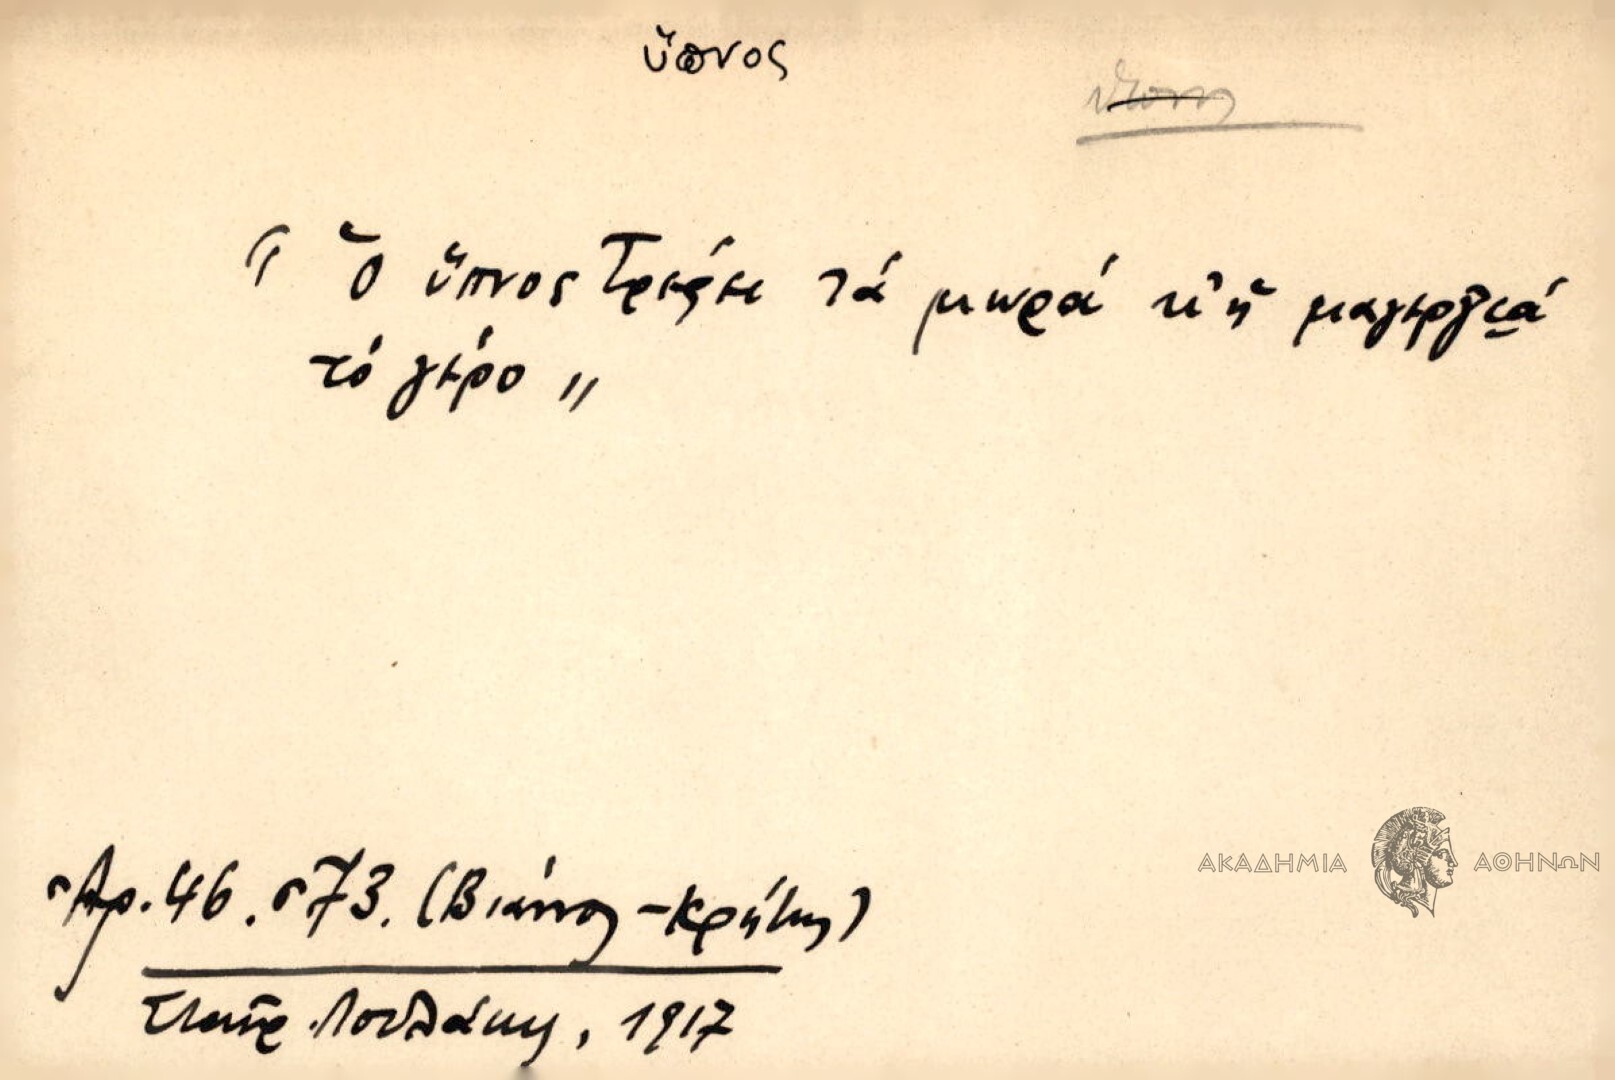 ὕπνος
"Ὁ ὕπνος τρέφει τά μωρά κ' ἡ μαγεργ̆ιά
τό γέρο"
Ἀρ. 46. σ 73. (Βιάννος - Κρήτης)
Σπυρ. Λουλάκης, 1917
ΑΚΑΔΗΜΙΑ ΑΘΗΝΩΝ